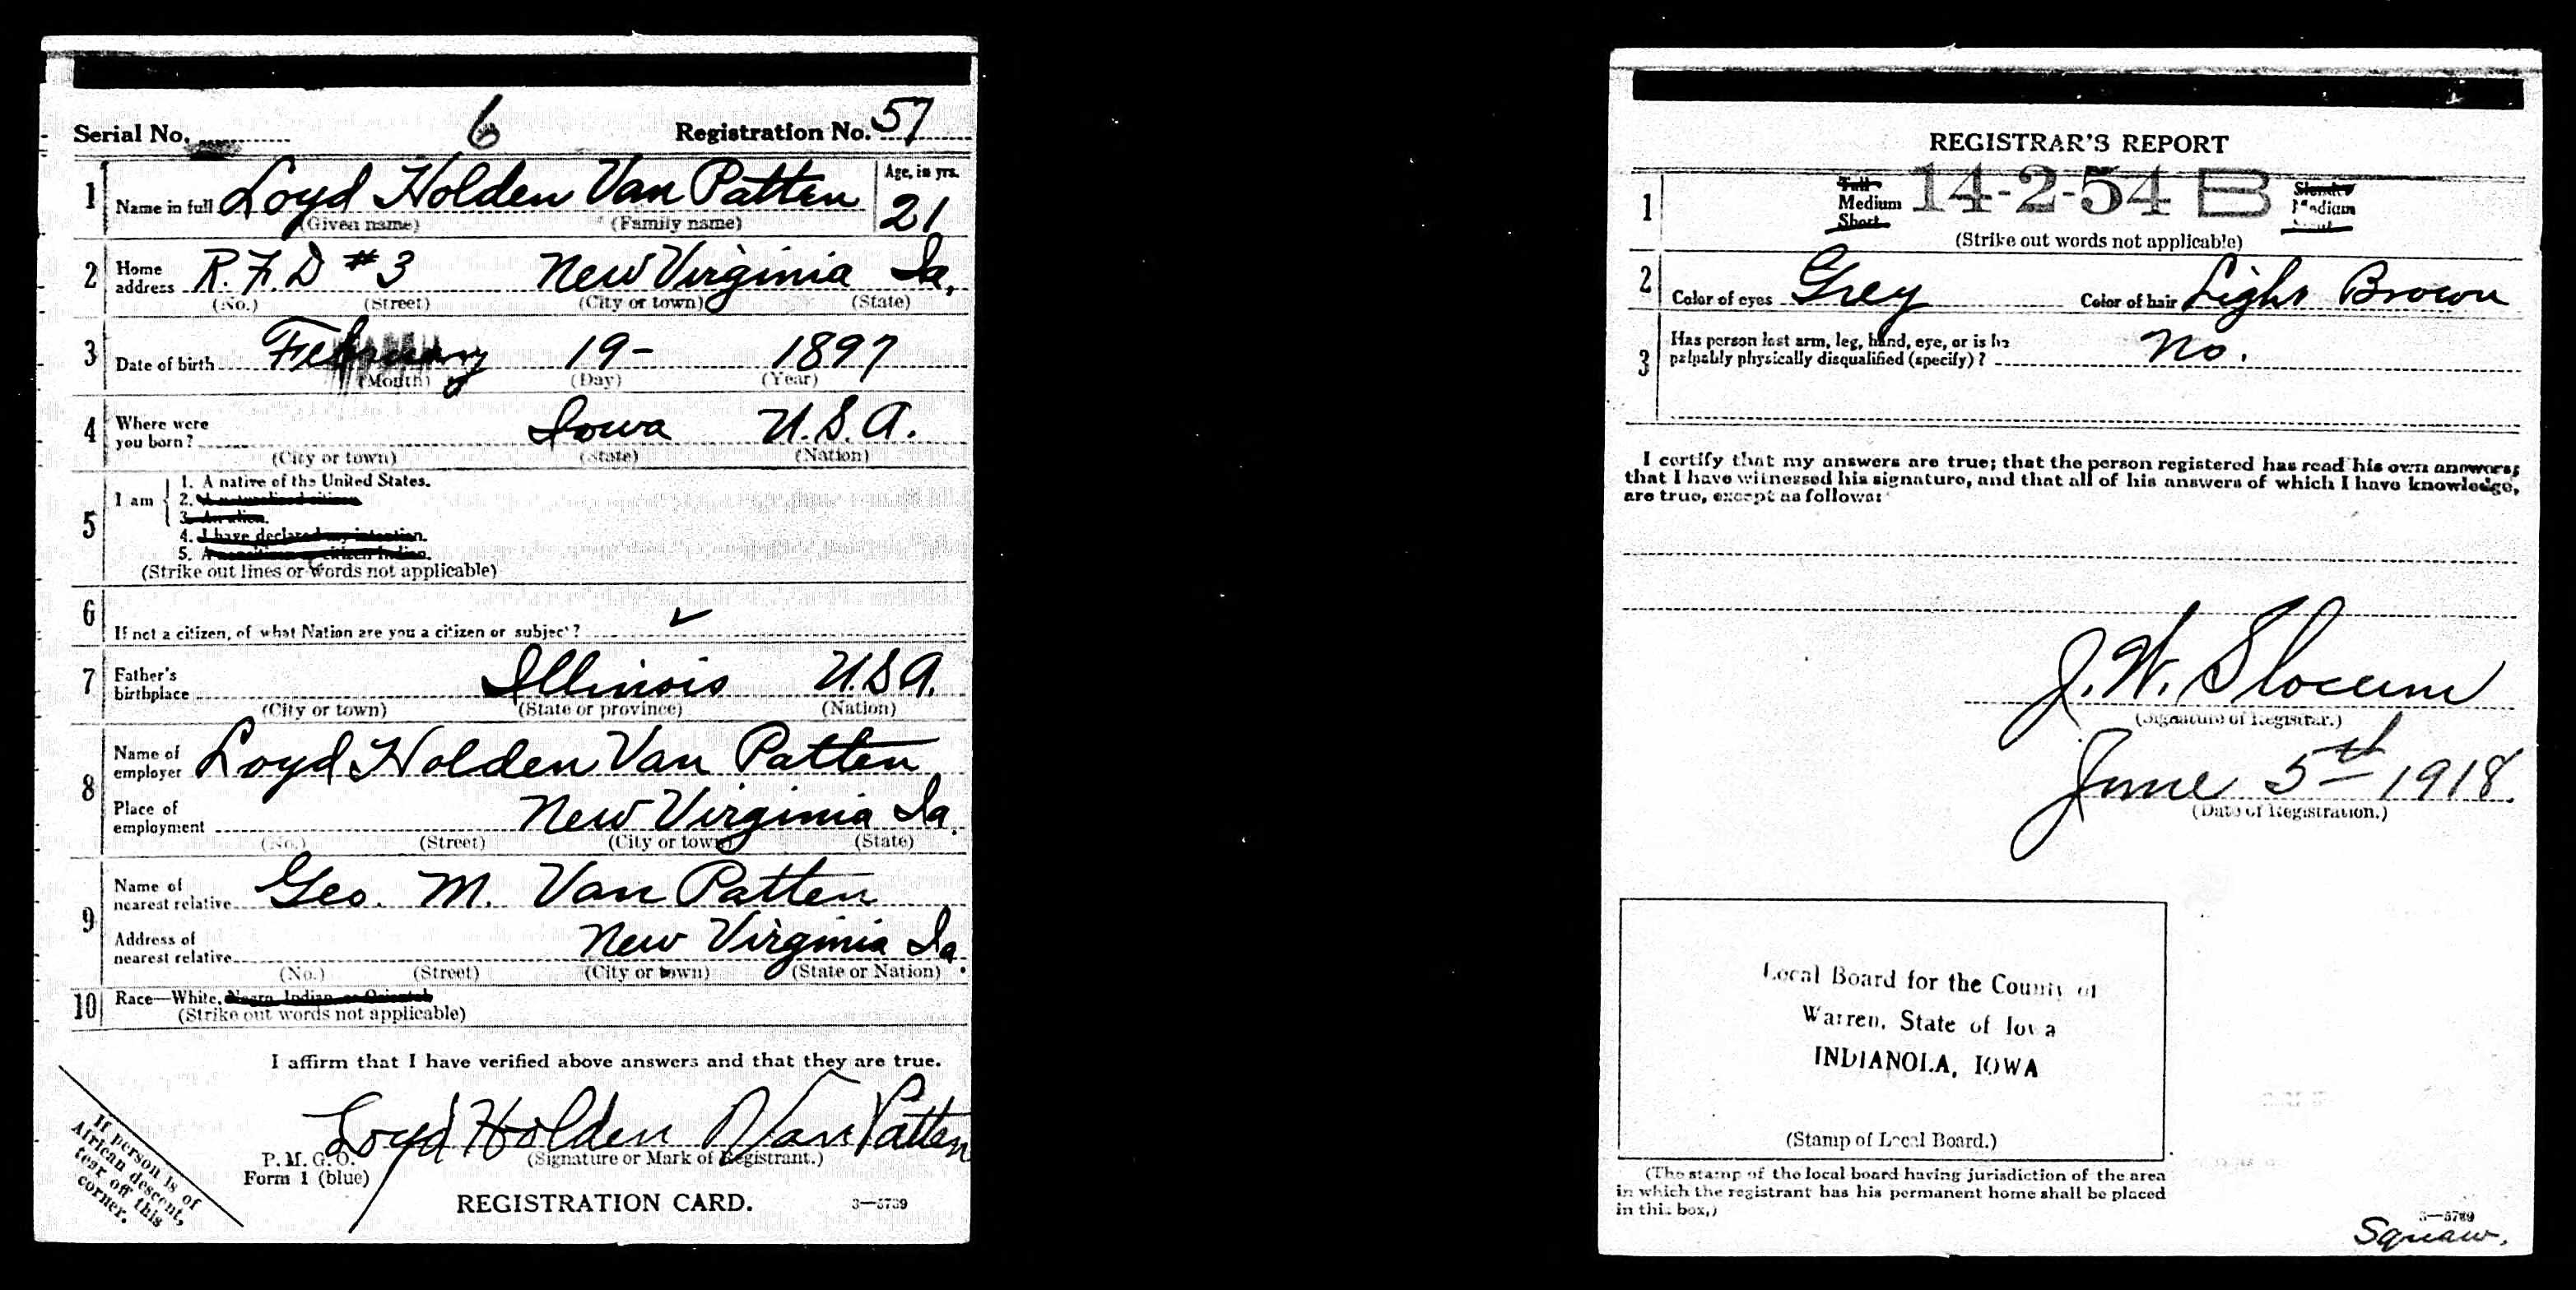 Serial No. 6 Registration No. 57
1 Name in full Loyd Holden Van Patten Age, in yrs. 21
(Given name) (Family name)
2 Home address R.F.D #3 New Virginia Ia.
(No.) (Street) (City or town) (State)
3 Date of birth February 19- 1897
(Month) (Day) (Year)
4 Where were you born? Iowa U.S.A.
(City or town) (State) (Nation)
5 I am
1. A native of the United States.
2. A naturalized citizen
3. An alien.
4. I have declared my intention.
5. A noncitizen or citizen Indian.
(Strike out lines or words not applicable)
6 If not a citizen, of what Nation are you a citizen or subject? ✓
7 Father's birthplace Illinois U.S.A.
(City or town) (State or province) (Nation)
8 Name of employer Loyd Holden Van Patten
Place of employment New Virginia Ia.
(No.) (Street) (City or town) (State)
9 Name of nearest relative Geo. M. Van Patten
Address of nearest relative New Virginia Ia.
(No.) (Street) (City or town) (State or Nation)
10 Race—White, Negro, Indian, or Oriental
(Strike out words not applicable)
I affirm that I have verified above answers and that they are true.
Loyd Holden Van Patten
P. M. G. O.
Form 1 (blue)
(Signature or Mark of Registrant.)
REGISTRATION CARD. 3—5789
If person is of
African descent,
tear off this
corner.
REGISTRAR'S REPORT
14-2-54 B
1 Tall Medium Short Slender Medium Stout
(Strike out words not applicable)
2 Color of eyes Grey Color of hair Light Brown
3 Has person lost arm, leg, hand, eye, or is he
palpably physically disqualified (specify)? No.
I certify that my answers are true; that the person registered has read his own answers;
that I have witnessed his signature, and that all of his answers of which I have knowledge,
are true, except as follows:
J. W. Slocum
(Signature of Registrar.)
June 5th 1918.
(Date of Registration.)
Local Board for the County of
Warren, State of Iowa
INDIANOLA, IOWA
(Stamp of Local Board.)
(The stamp of the local board having jurisdiction of the area
in which the registrant has his permanent home shall be placed
in this box.)
3—5789
Squaw.